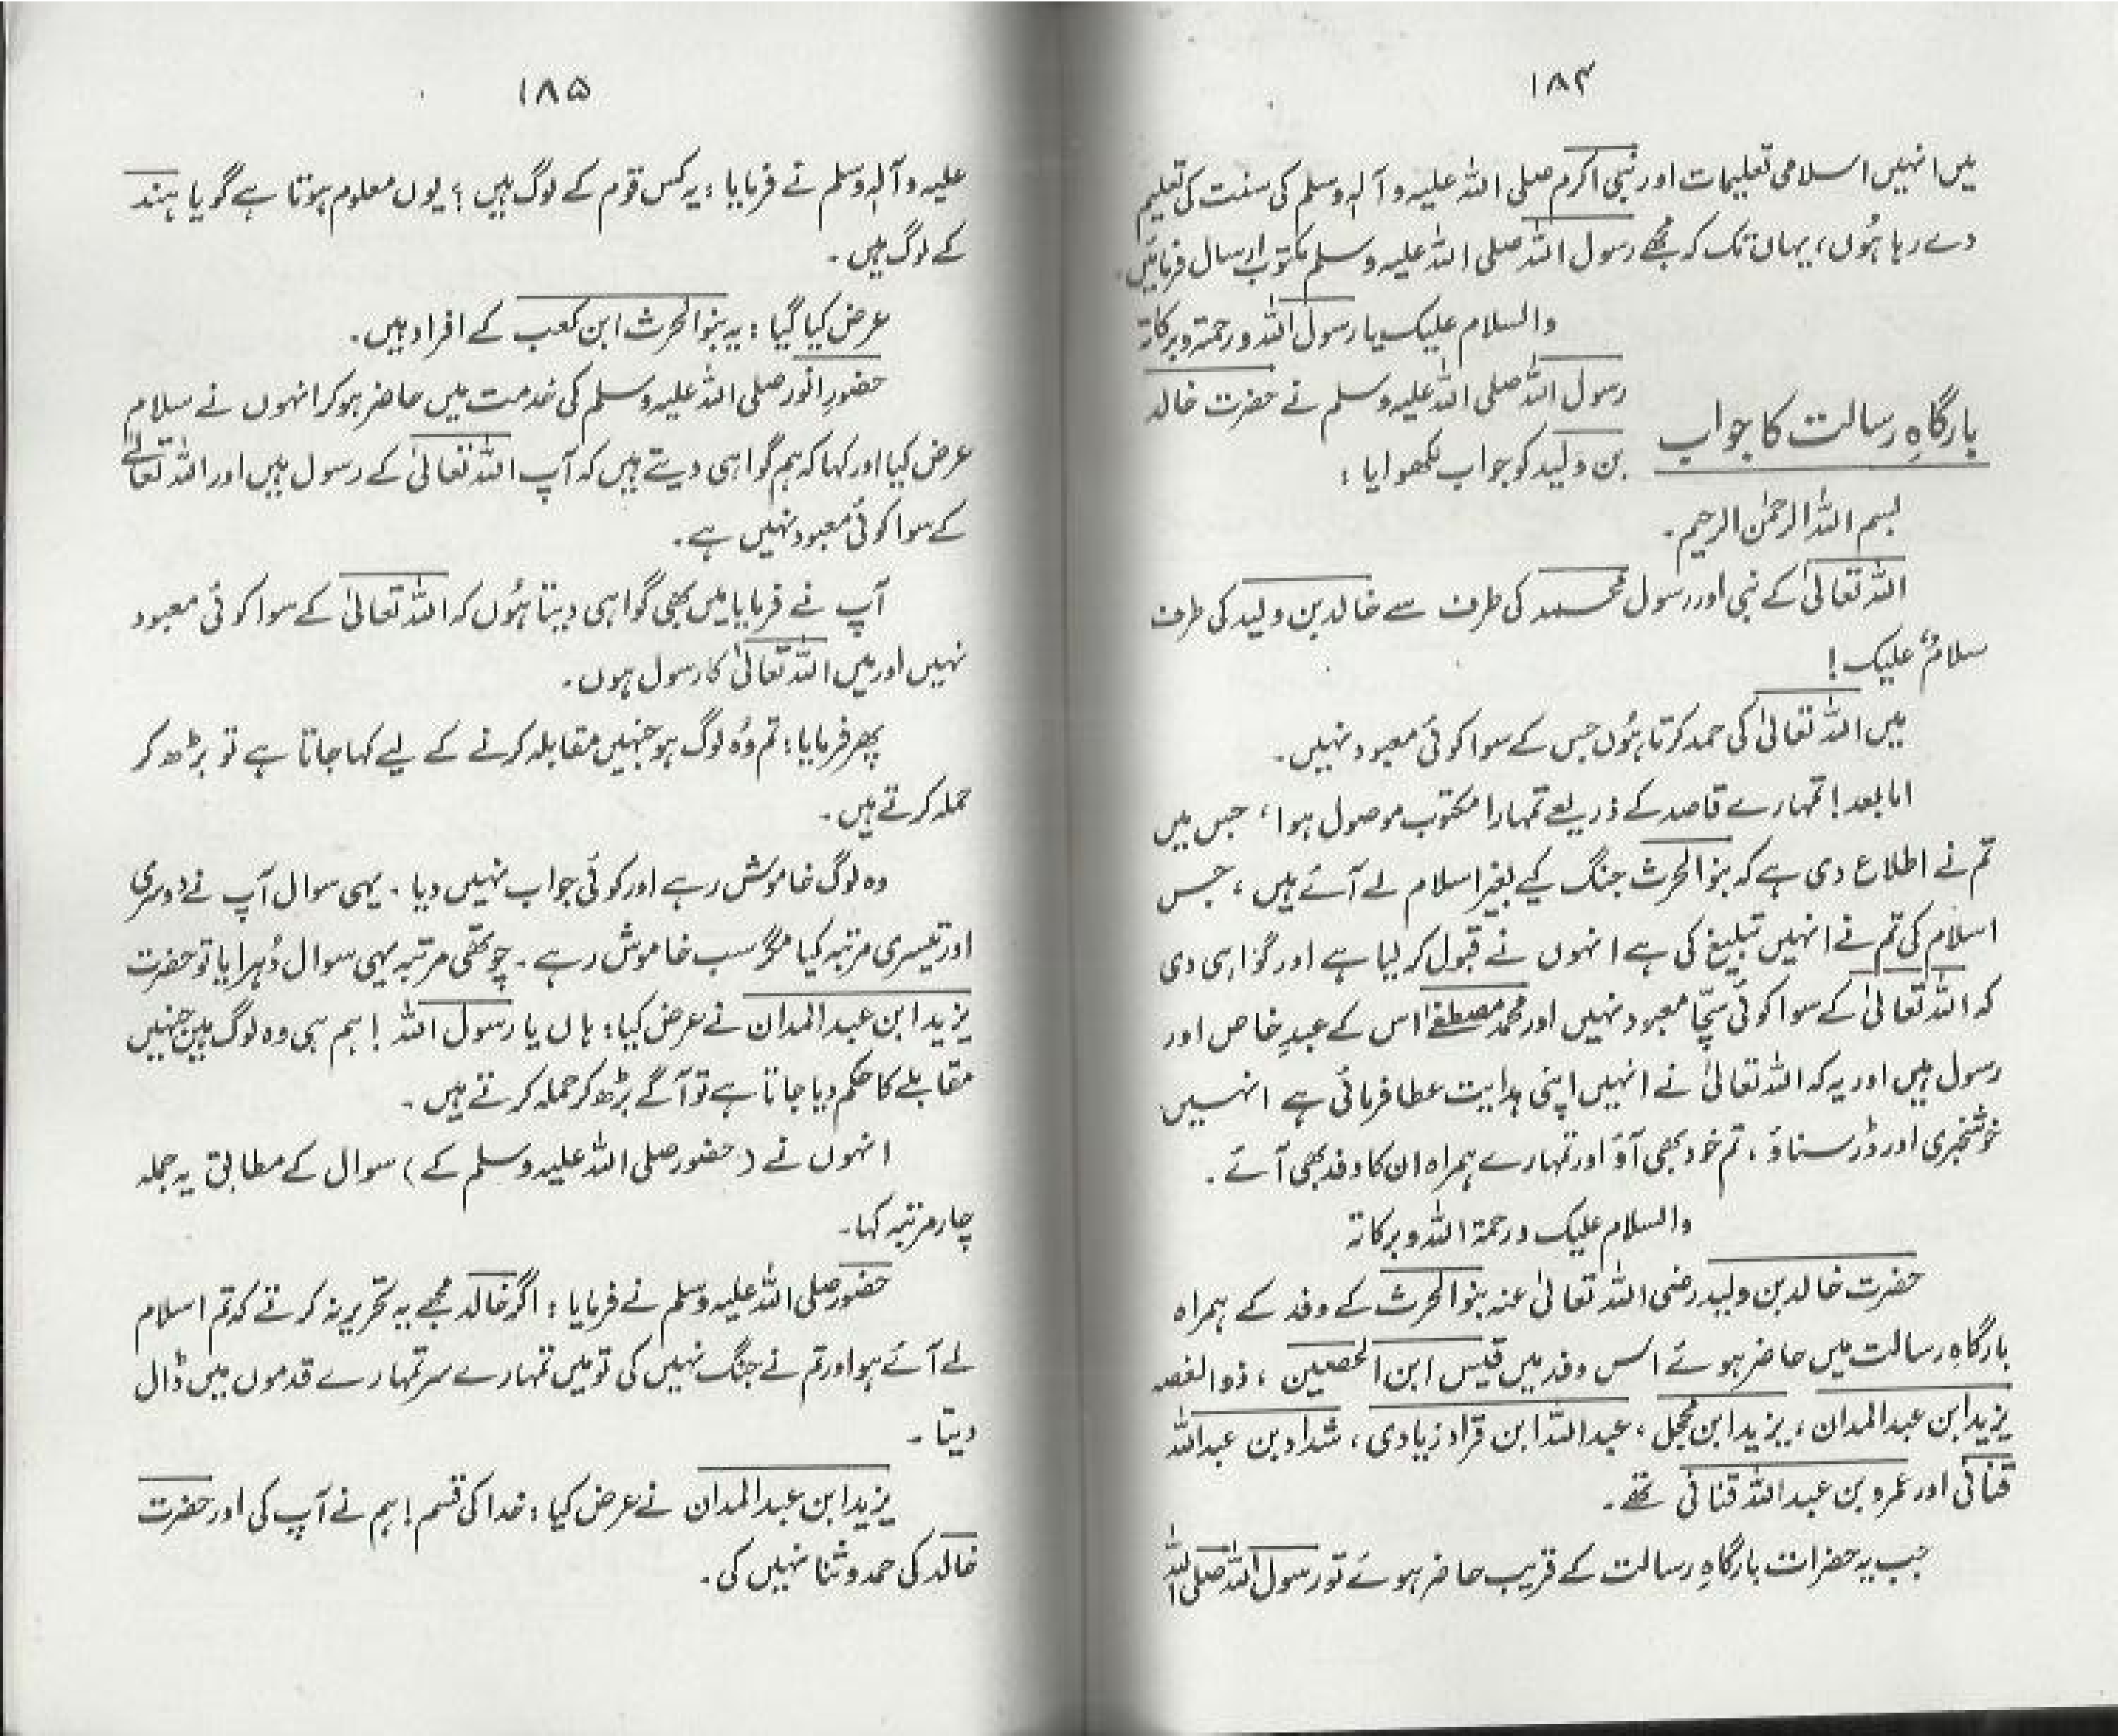 ۱۸۴
میں انہیں اسلامی تعلیمات اور نبی اکرم صلی اللہ علیہ و آلہٖ وسلم کی سنت کی تعلیم
دے رہا ہُوں، یہاں تک کہ مجھے رسول اللہ صلی اللہ علیہ وسلم مکتوب ارسال فرمائیں۔
والسلام علیک یا رسول اللہ ورحمۃ وبرکاتہ
بارگاہِ رسالت کا جواب
رسول اللہ صلی اللہ علیہ وسلم نے حضرت خالد
بن ولید کو جواب لکھوایا :
بسم اللہ الرحمٰن الرحیم۔
اللہ تعالیٰ کے نبی اور رسول محمد کی طرف سے خالد بن ولید کی طرف
سلامٌ علیک!
میں اللہ تعالیٰ کی حمد کرتا ہُوں جس کے سوا کوئی معبود نہیں۔
اما بعد! تمہارے قاصد کے ذریعے تمہارا مکتوب موصول ہوا، جس میں
تم نے اطلاع دی ہے کہ بنو الحرث جنگ کیے بغیر اسلام لے آئے ہیں، جس
اسلام کی تم نے انہیں تبلیغ کی ہے انہوں نے قبول کر لیا ہے اور گواہی دی
کہ اللہ تعالیٰ کے سوا کوئی سچّا معبود نہیں اور محمد مصطفےٰ اس کے عبدِ خاص اور
رسول ہیں اور یہ کہ اللہ تعالیٰ نے انہیں اپنی ہدایت عطا فرمائی ہے انہیں
خوشخبری اور ڈر سناؤ، تم خود بھی آؤ اور تمہارے ہمراہ ان کا وفد بھی آئے۔
والسلام علیک ورحمۃ اللہ وبرکاتہ
حضرت خالد بن ولید رضی اللہ تعالیٰ عنہ بنو الحرث کے وفد کے ہمراہ
بارگاہِ رسالت میں حاضر ہوئے اس وفد میں قیس ابن الحصین، ذوالغصہ
یزید ابن عبدالمدان، یزید ابن محجل، عبداللہ ابن قراد زیادی، شداد بن عبداللہ
قنانی اور عمرو بن عبداللہ قنانی تھے۔
جب یہ حضرات بارگاہِ رسالت کے قریب حاضر ہوئے تو رسول اللہ صلی اللہ
۱۸۵
علیہ و آلہٖ وسلم نے فرمایا : یہ کس قوم کے لوگ ہیں؟ یوں معلوم ہوتا ہے گویا ہند
کے لوگ ہیں۔
عرض کیا گیا : یہ بنو الحرث ابن کعب کے افراد ہیں۔
حضورِ انور صلی اللہ علیہ وسلم کی خدمت میں حاضر ہو کر انہوں نے سلام
عرض کیا اور کہا کہ ہم گواہی دیتے ہیں کہ آپ اللہ تعالیٰ کے رسول ہیں اور اللہ تعالےٰ
کے سوا کوئی معبود نہیں ہے۔
آپ نے فرمایا میں بھی گواہی دیتا ہُوں کہ اللہ تعالیٰ کے سوا کوئی معبود
نہیں اور میں اللہ تعالیٰ کا رسول ہوں۔
پھر فرمایا : تم وُہ لوگ ہو جنہیں مقابلہ کرنے کے لیے کہا جاتا ہے تو بڑھ کر
حملہ کرتے ہیں۔
وہ لوگ خاموش رہے اور کوئی جواب نہیں دیا۔ یہی سوال آپ نے دُوسری
اور تیسری مرتبہ کیا مگر سب خاموش رہے۔ چوتھی مرتبہ یہی سوال دُہرایا تو حضرت
یزید ابن عبدالمدان نے عرض کیا : ہاں یا رسول اللہ! ہم ہی وہ لوگ ہیں جنہیں
مقابلے کا حکم دیا جاتا ہے تو آگے بڑھ کر حملہ کرتے ہیں۔
انہوں نے (حضور صلی اللہ علیہ وسلم کے) سوال کے مطابق یہ جملہ
چار مرتبہ کہا۔
حضور صلی اللہ علیہ وسلم نے فرمایا : اگر خالد مجھے یہ تحریر نہ کرتے کہ تم اسلام
لے آئے ہو اور تم نے جنگ نہیں کی تو میں تمہارے سر تمہارے قدموں میں ڈال
دیتا۔
یزید ابن عبدالمدان نے عرض کیا : خدا کی قسم! ہم نے آپ کی اور حضرت
خالد کی حمد و ثنا نہیں کی۔